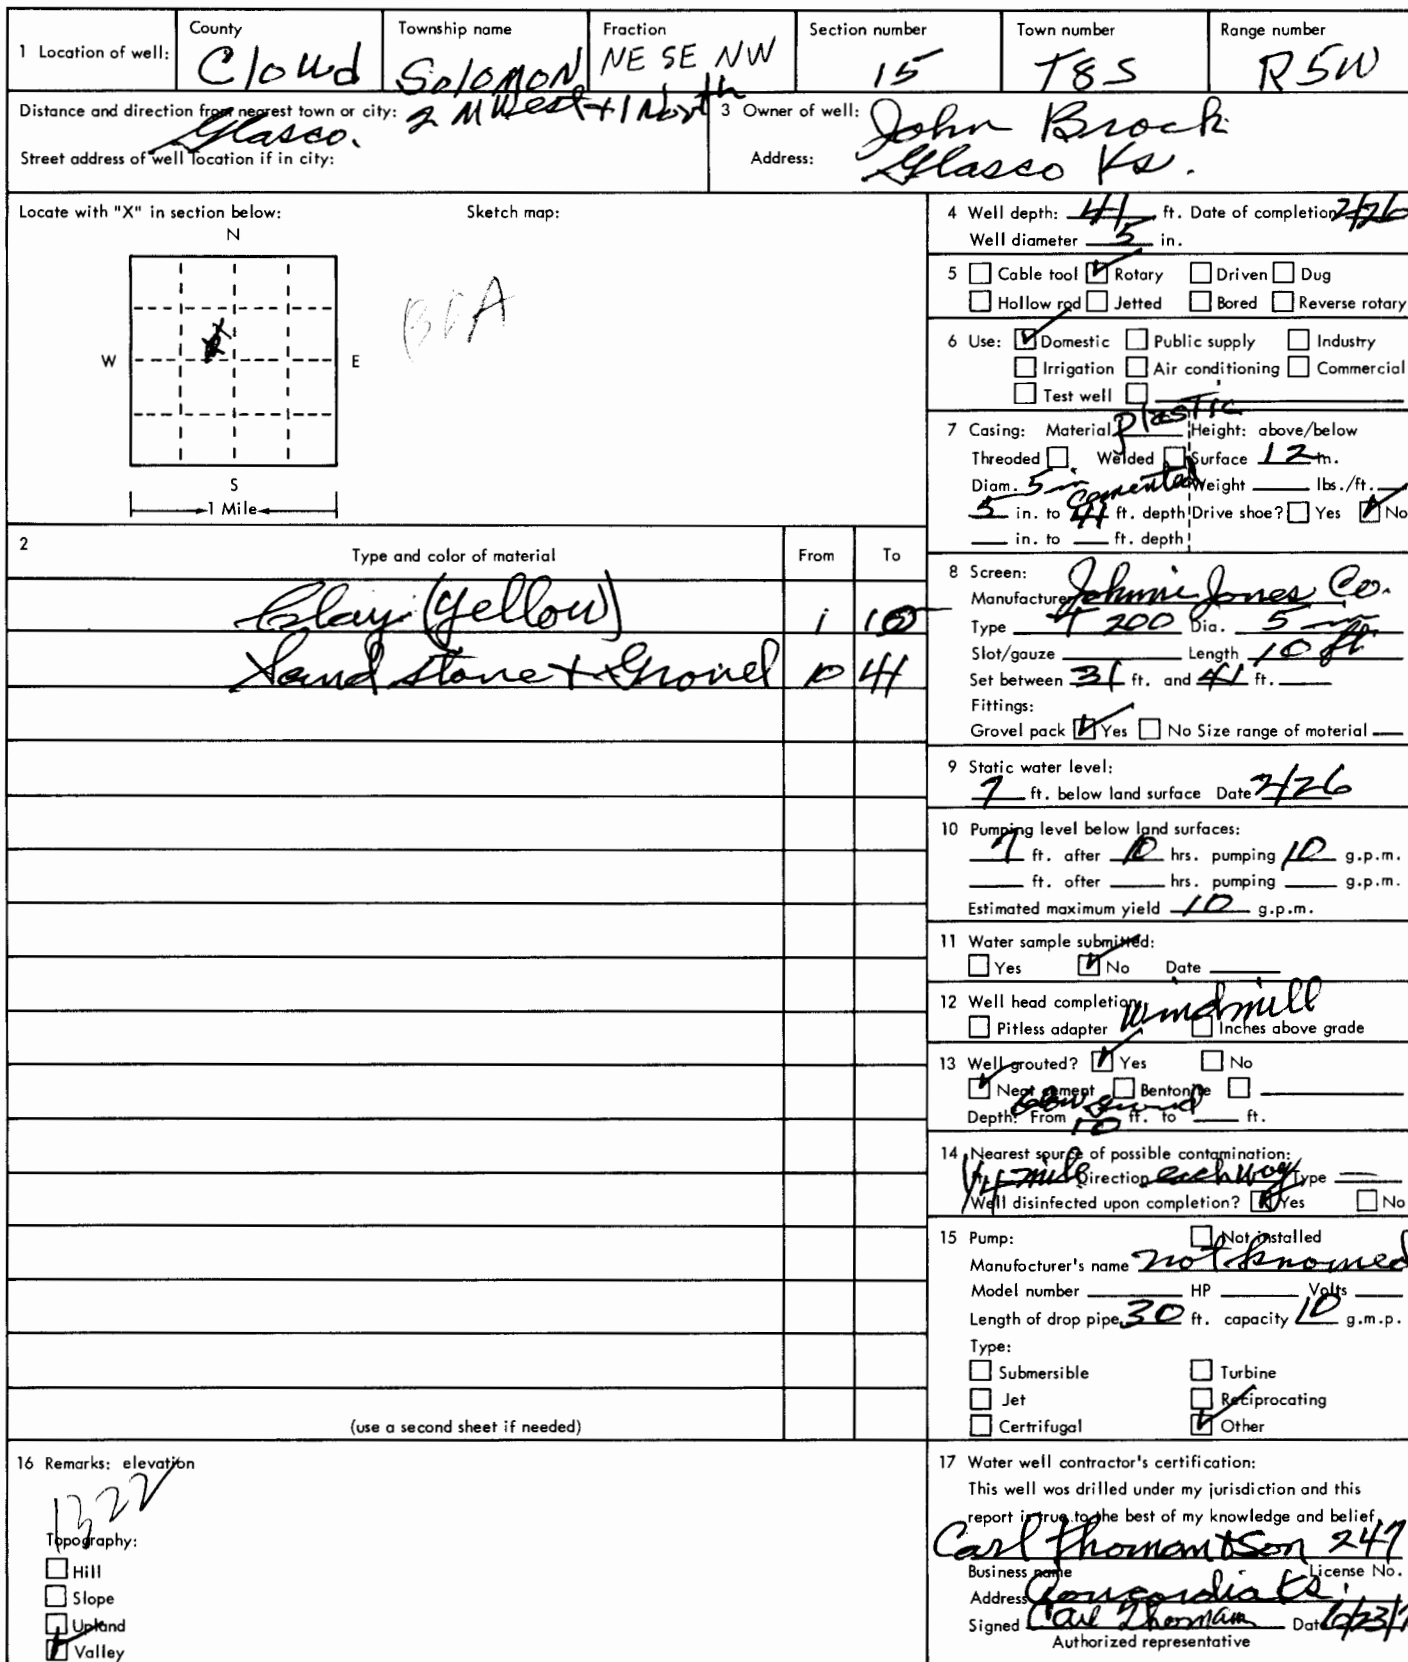 1 Location of well: County Cloud Township name Solomon Fraction NE SE NW Section number 15 Town number T8S Range number R5W
Distance and direction from nearest town or city: 2 M West + 1 North
Glasco.
Street address of well location if in city:
3 Owner of well: John Brock
Address: Glasco Ks.
Locate with "X" in section below: Sketch map:
N
W X E
S
1 Mile
4 Well depth: 41 ft. Date of completion 2/26
Well diameter 5 in.
5 Cable tool Rotary Driven Dug
Hollow rod Jetted Bored Reverse rotary
6 Use: Domestic Public supply Industry
Irrigation Air conditioning Commercial
Test well
7 Casing: Material plastic Height: above/below
Threoded Welded Surface 12 in.
Diam. 5 in Cemented Weight lbs./ft.
5 in. to 41 ft. depth Drive shoe? Yes No
in. to ft. depth
2 Type and color of material From To
Clay (yellow) 1 10
Sand stone + Gravel 10 41
(use a second sheet if needed)
8 Screen:
Manufacturer Johnnie Jones Co.
Type T 200 Dia. 5 in
Slot/gauze Length 10 ft
Set between 31 ft. and 41 ft.
Fittings:
Grovel pack Yes No Size range of material
9 Static water level:
7 ft. below land surface Date 2/26
10 Pumping level below land surfaces:
7 ft. after 10 hrs. pumping 10 g.p.m.
ft. ofter hrs. pumping g.p.m.
Estimated maximum yield 10 g.p.m.
11 Water sample submitted:
Yes No Date
12 Well head completion windmill
Pitless adapter Inches above grade
13 Well grouted? Yes No
Neat cement Bentonite
Depth: From 10 ft. to ft.
14 Nearest source of possible contamination:
1/4 mile Direction each way Type
Well disinfected upon completion? Yes No
15 Pump: Not installed
Manufocturer's name not knowned
Model number HP Volts
Length of drop pipe 30 ft. capacity 10 g.m.p.
Type:
Submersible Turbine
Jet Reciprocating
Certrifugal Other
16 Remarks: elevation
1322
Topography:
Hill
Slope
Upland
Valley
17 Water well contractor's certification:
This well wos drilled under my jurisdiction and this
report is true to the best of my knowledge and belief
Carl 247
Business name License No.
Address Concordia Ks.
Signed Carl Date
Authorized representative